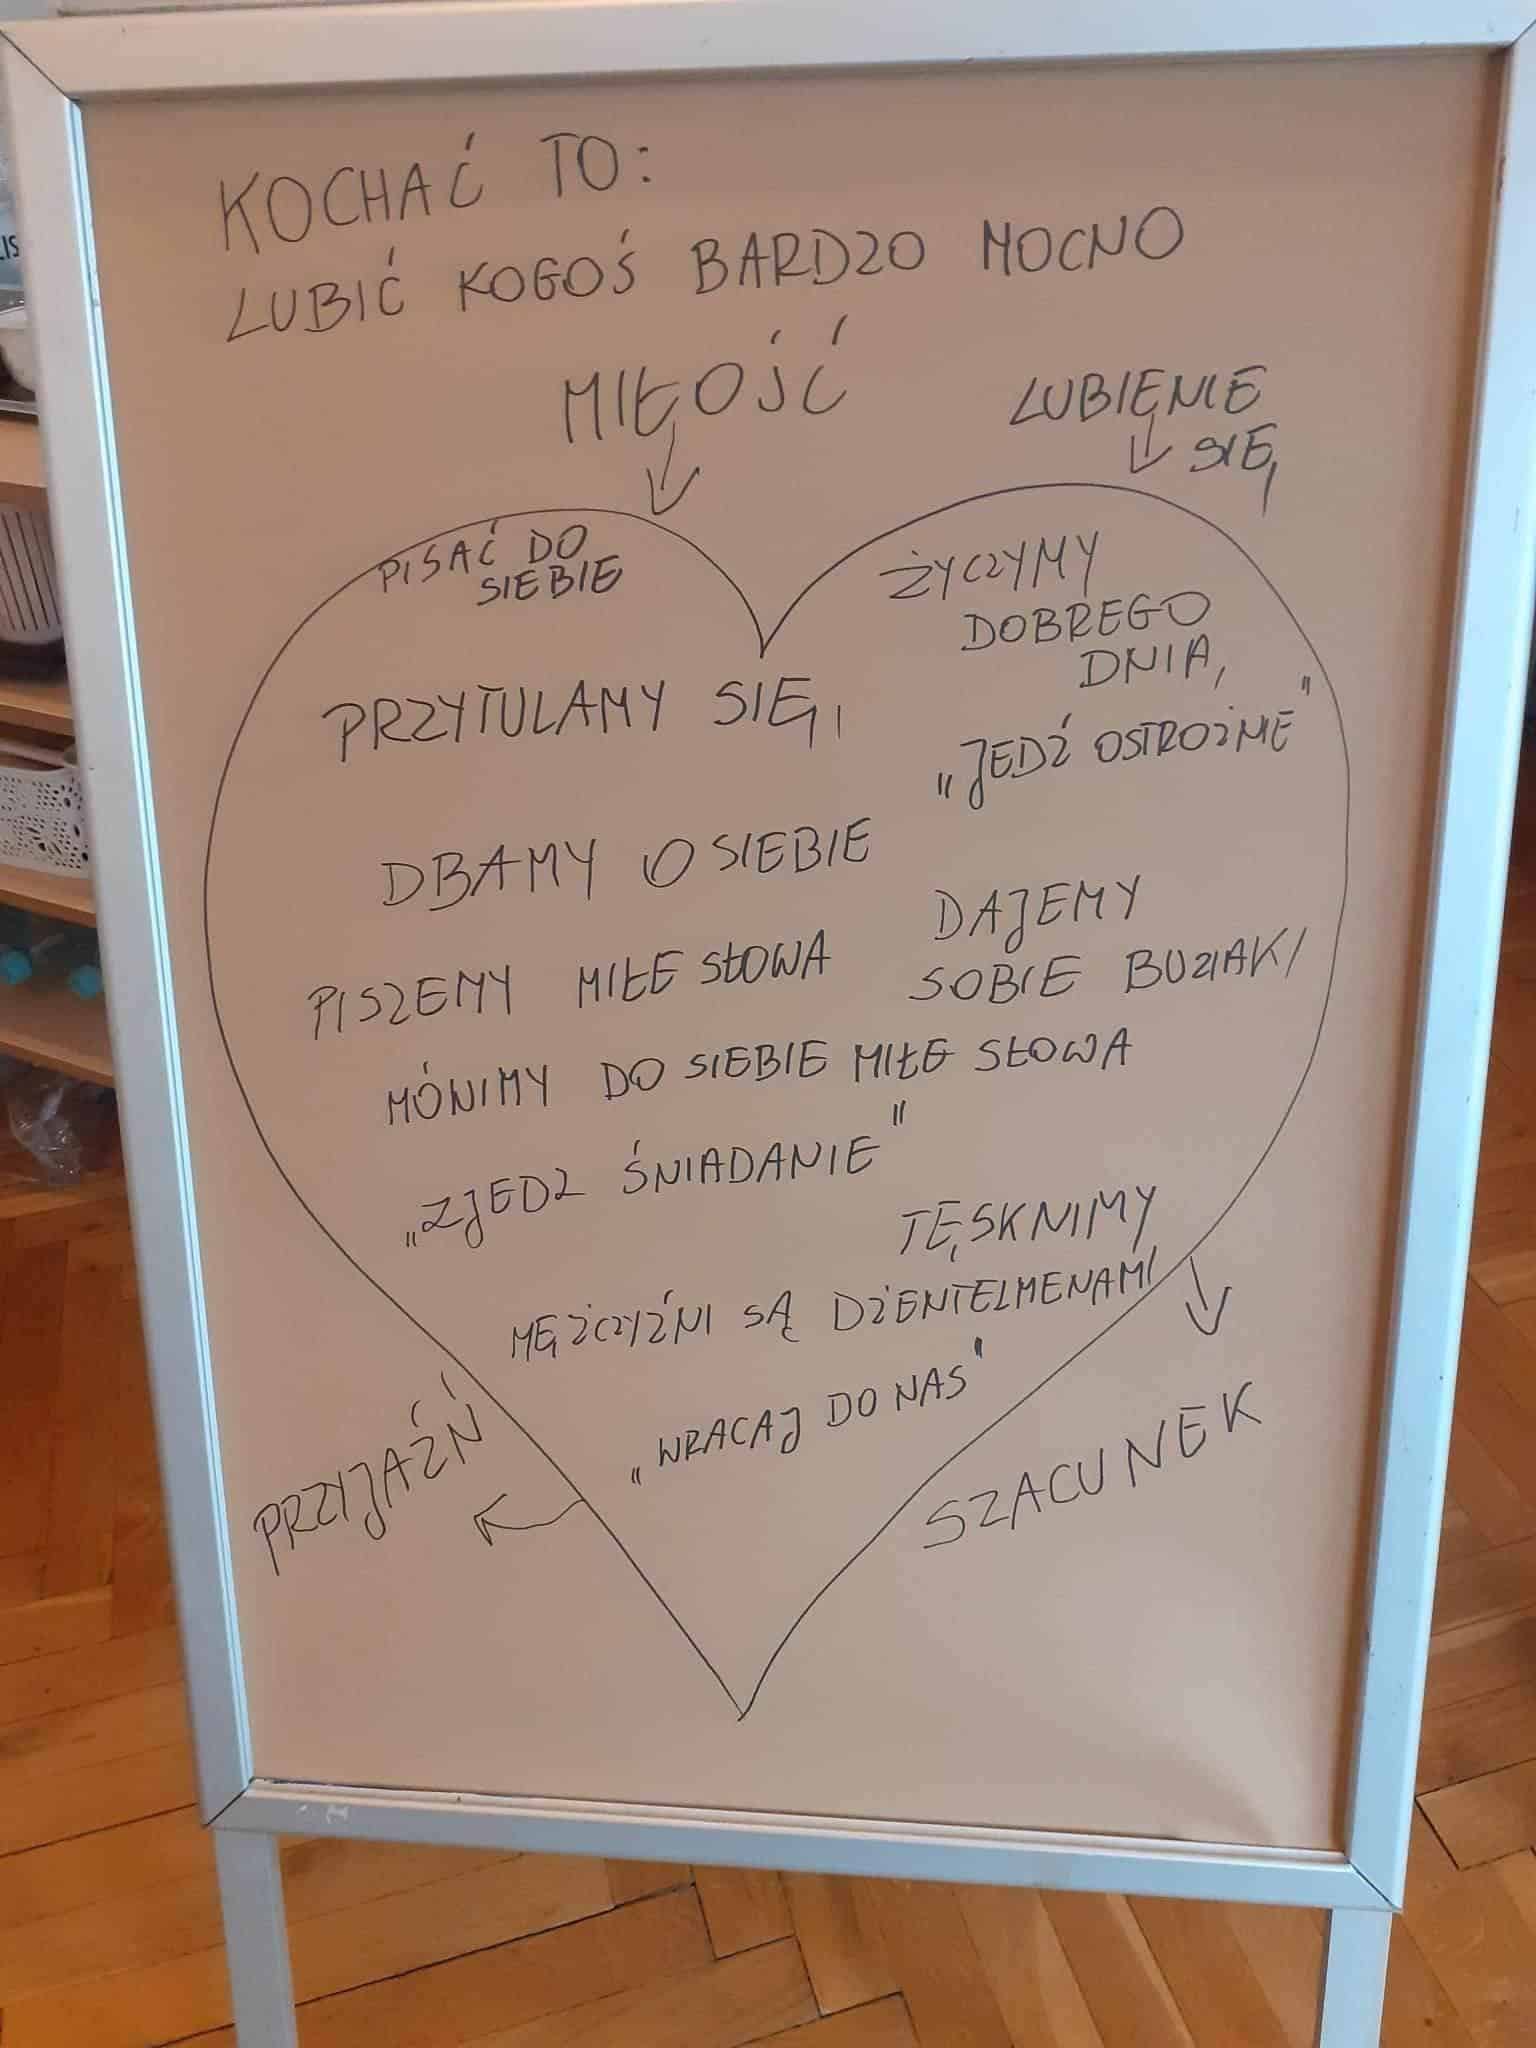 KOCHAĆ TO:
LUBIĆ KOGOŚ BARDZO MOCNO
MIŁOŚĆ
LUBIENIE
SIĘ
PISAĆ DO
SIEBIE
ŻYCZYMY
DOBREGO
DNIA,
„JEDŹ OSTROŻNIE”
PRZYTULAMY SIĘ,
DBAMY O SIEBIE
DAJEMY
SOBIE BUZIAKI
PISZEMY MIŁE SŁOWA
MÓNIMY DO SIEBIE MIŁE SŁOWA
„ZJEDZ ŚNIADANIE”
TĘSKNIMY
MĘŻCZYŹNI SĄ DŻENTELMENAMI
„WRACAJ DO NAS”
PRZYJAŹŃ
SZACUNEK